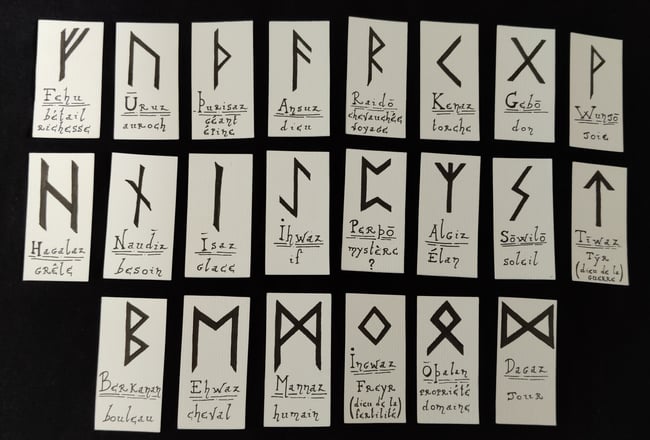 ᚠ
Fehu
bétail
richesse
ᚢ
Ūruz
auroch
ᚦ
Þurisaz
géant
épine
ᚨ
Ansuz
dieu
ᚱ
Raidō
chevauchée
voyage
ᚲ
Kenaz
torche
ᚷ
Gebō
don
ᚹ
Wunjō
joie
ᚺ
Hagalaz
grêle
ᚾ
Nauđiz
besoin
ᛁ
Īsaz
glace
ᛇ
İhwaz
if
ᛈ
Perþō
mystère
?
ᛉ
Algiz
Élan
ᛋ
Sōwilō
soleil
ᛏ
Tīwaz
Týr
(dieu de la
guerre)
ᛒ
Berkanan
bouleau
ᛖ
Ehwaz
cheval
ᛗ
Mannaz
humain
ᛜ
İngwaz
Freyr
(dieu de la
fertilité)
ᛟ
Ōþalan
propriété
domaine
ᛞ
Dagaz
jour